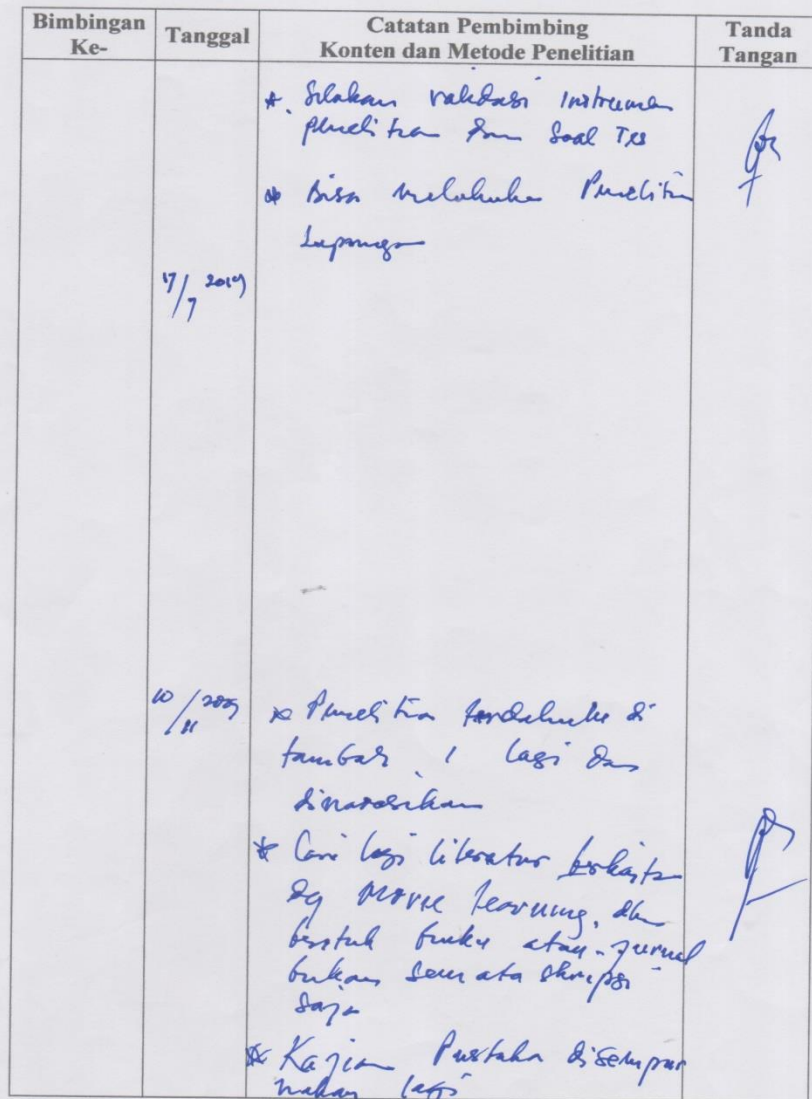 Bimbingan Ke-
Tanggal
Catatan Pembimbing
Konten dan Metode Penelitian
Tanda Tangan
* Silakan validasi Instrumen
penelitian dan Soal Tes
* Bisa melakukan Penelitian
Lapangan
17/7 2019
10/11 2009
* Penelitian terdahulu di
tambah 1 lagi dan
dinarasikan
* Cari lagi literatur berkaitan
dg Movie learning, dlm
bentuk buku atau jurnal
bukan semata skripsi
saja
* Kajian Pustaka disempur
nakan lagi